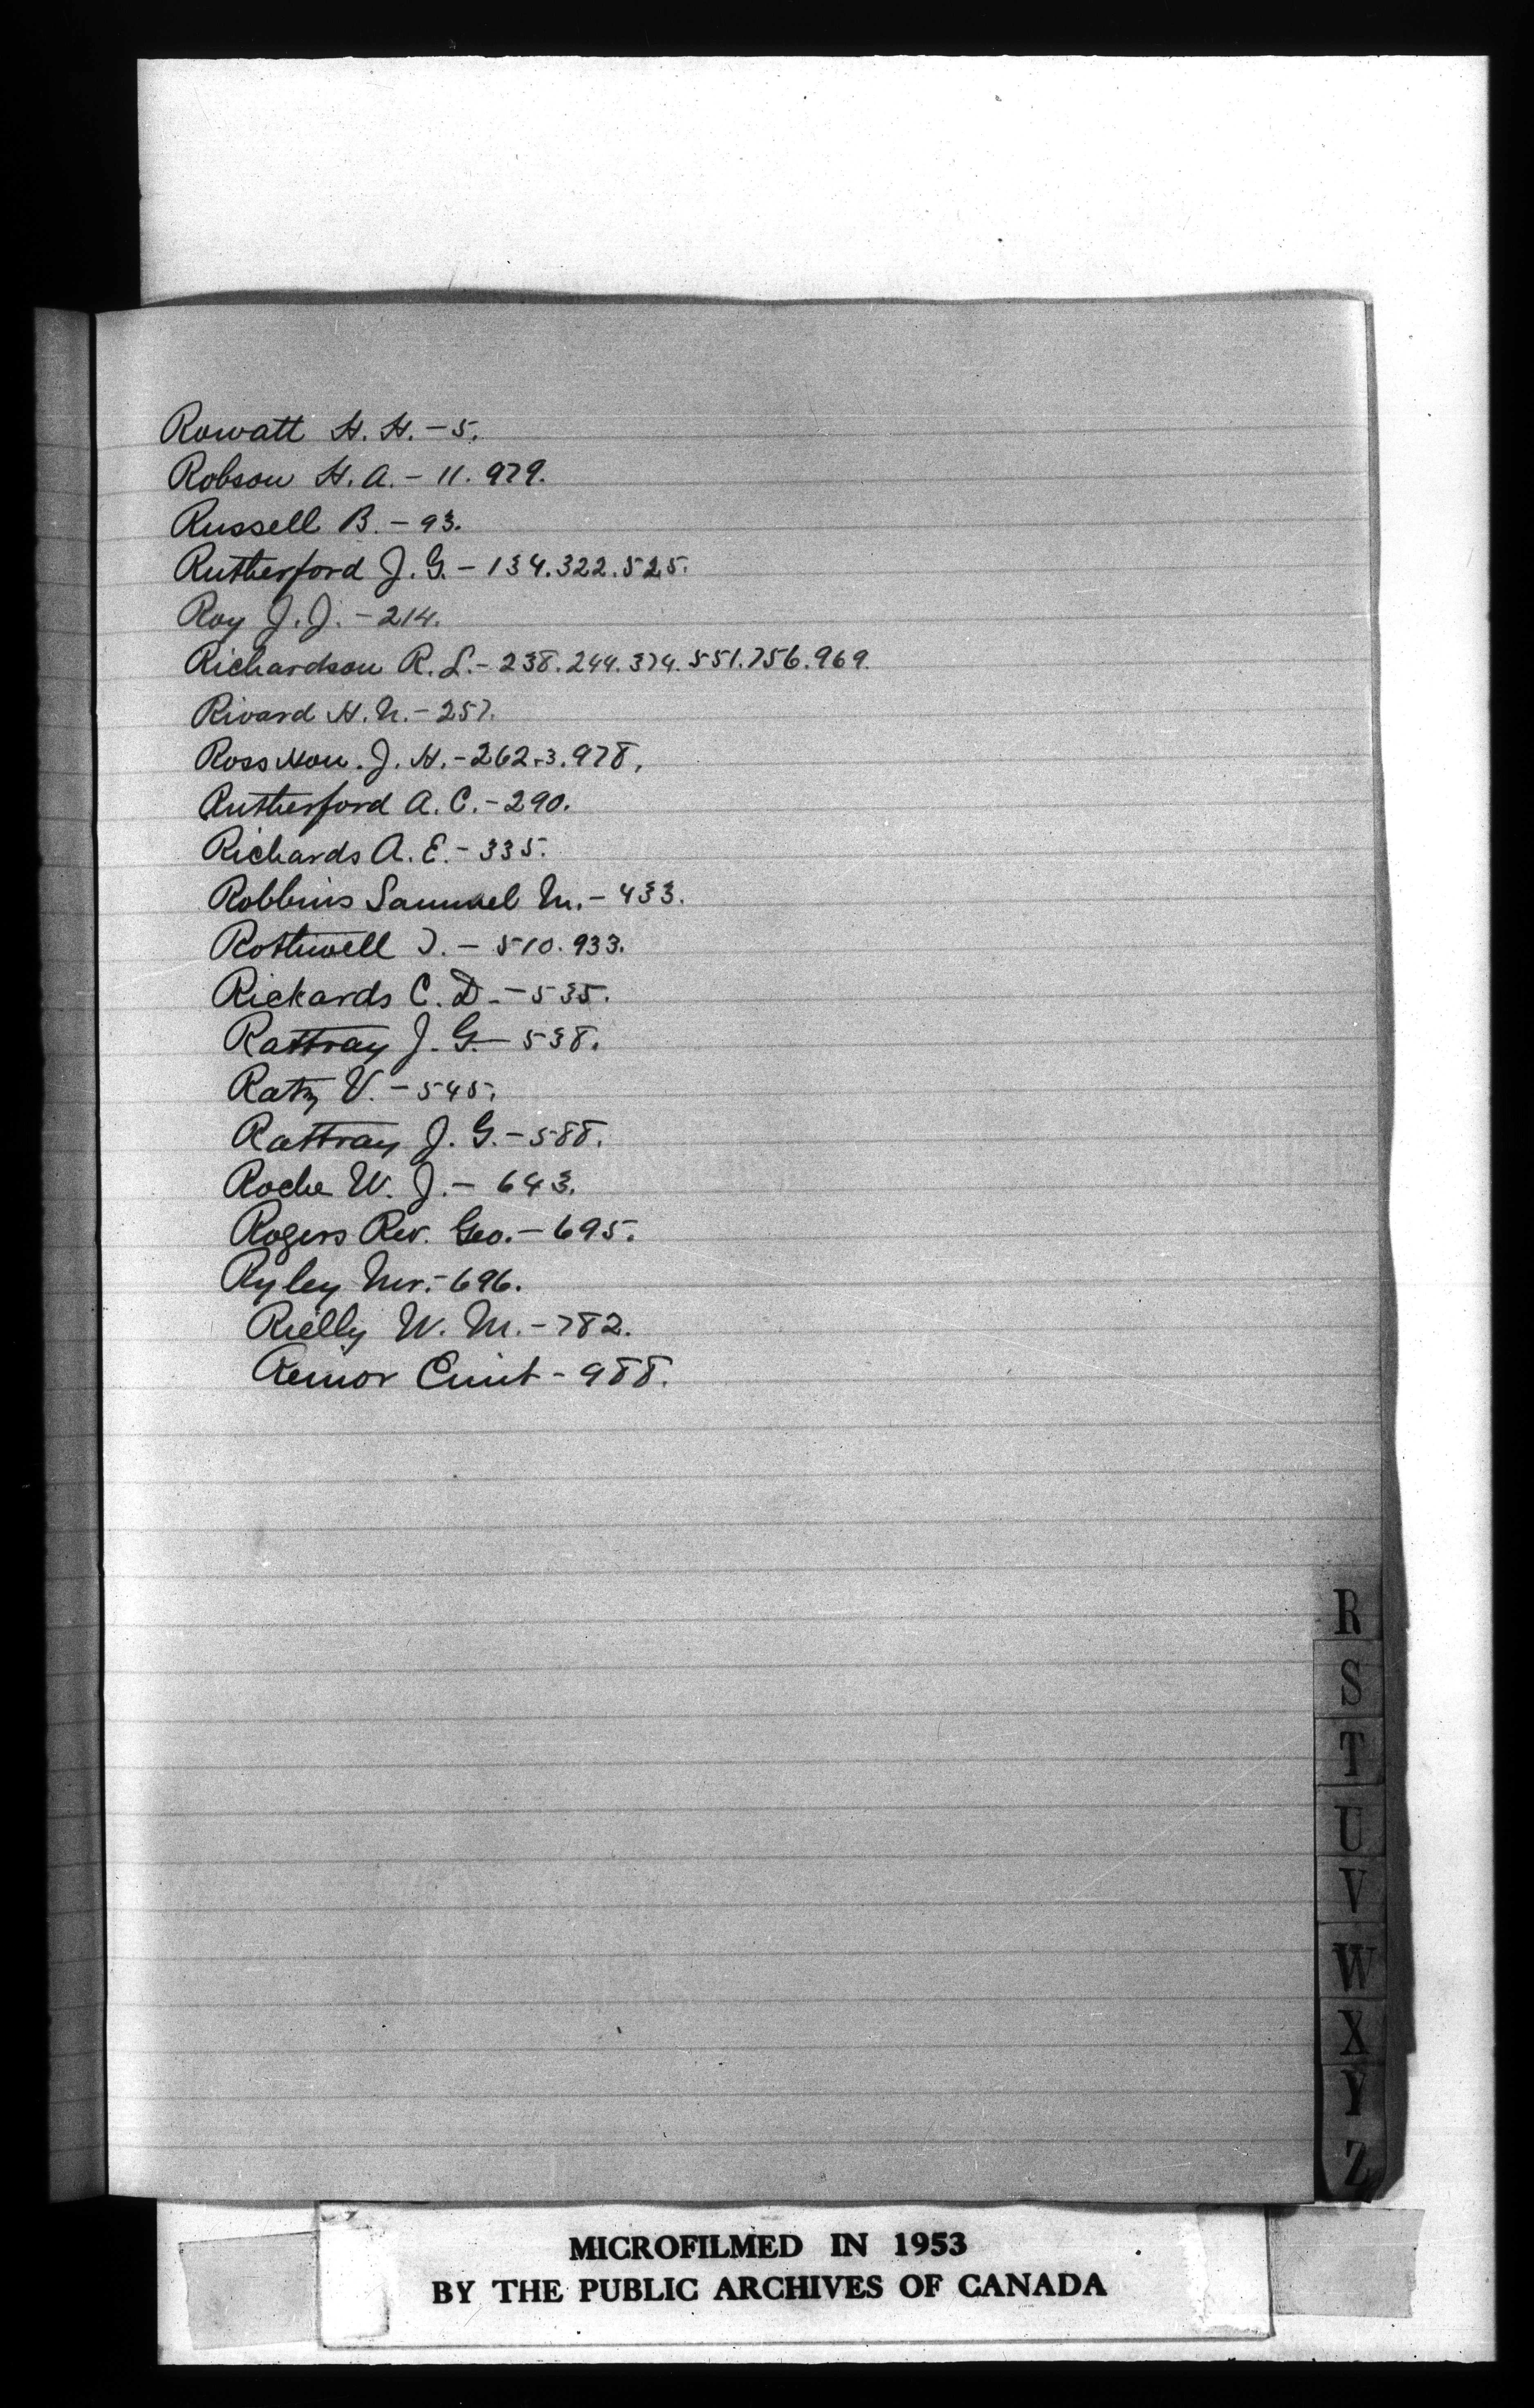 Rowatt H. H. - 5.
Robson H. A. - 11. 979.
Russell B. - 93.
Rutherford J. G. - 134. 322. 525.
Roy J. J. - 214.
Richardson R. L. - 238. 244. 374. 551. 756. 969.
Rivard H. N. - 257.
Ross Hon. J. H. - 262-3. 978.
Rutherford A. C. - 290.
Richards A. E. - 335.
Robbins Samuel M. - 433.
Rothwell T. - 510. 933.
Rickards C. D. - 535.
Rattray J. G. - 538.
Ratz V. - 545.
Rattray J. G. - 588.
Roche W. J. - 643.
Rogers Rev. Geo. - 695.
Ryley Mr. - 696.
Rielly W. M. - 782.
- 988.
R
S
T
U
V
W
X
Y
Z
MICROFILMED IN 1953
BY THE PUBLIC ARCHIVES OF CANADA